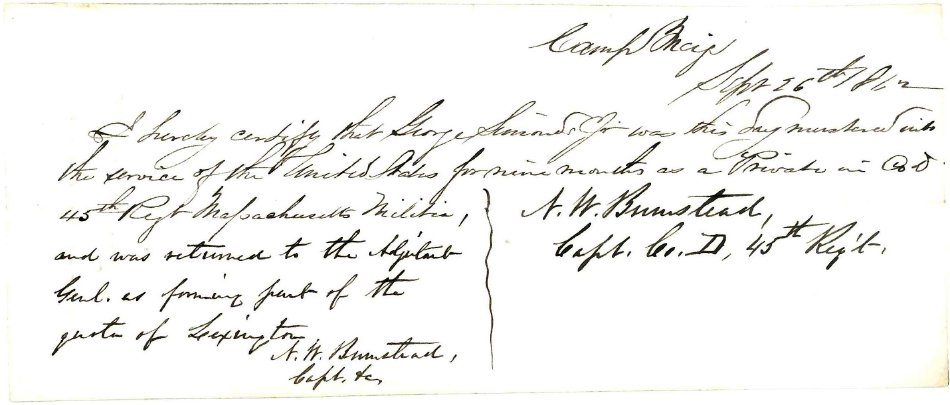 Camp Meig
Sept 26th 1862
I hereby certify that George Simonds Jr was this day mustered into
the service of the United States for nine months as a Private in Co D
45th Regt Massachusetts Militia,
and was returned to the Adjutant
Genl. as forming part of the
quota of Lexington
N. W. Bumstead,
Capt. &c.
N. W. Bumstead,
Capt. Co. D, 45th Reg't.